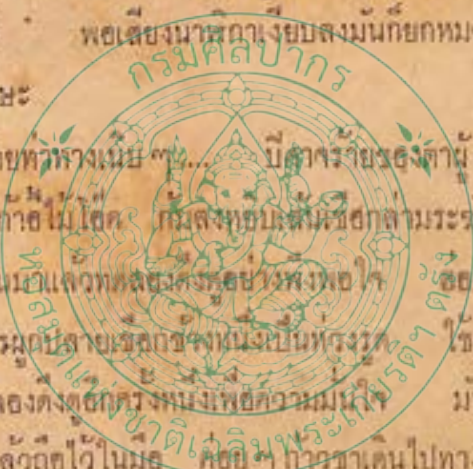 พอเสียงนาฬิกาเงียบลงมันก็ยกหม
ษะ
ยท่าทางเนิบ ๆ ... ปีศาจร้ายของตาผู้
ก้าอี้ไม้โอ๊ค ก้มลงหยิบเส้นเชือกล่ามระ
นมาแล้วทดลองดึงดูอย่างพึงพอใจ
รผูกปลายเชือกข้างหนึ่งเป็นห่วงรูด ใช้
องดึงดูอีกครั้งหนึ่งเพื่อความมั่นใจ ม
ล้วถือไว้ในมือ ค่อย ๆ ก้าวขาเดินไปทา
กรมศิลปากร
หอสมุดแห่งชาติเฉลิมพระเกียรติฯ ตรัง